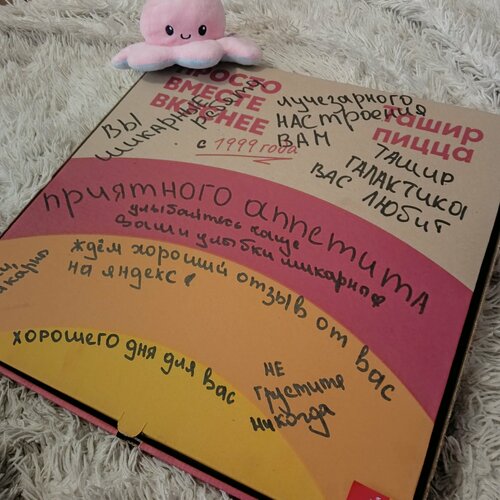 ПРОСТО
ВМЕСТЕ
ВКУСНЕЕ
с 1999 года
ТАШИР
ПИЦЦА
ВЫ
ШИКАРНЫЕ
РЕБЯТА
ЛУЧЕЗАРНОГО
НАСТРОЕНИЯ
ВАМ
ТАШИР
ГАЛАКТИКА
ВАС ЛЮБИТ
ПРИЯТНОГО АППЕТИТА
УЛЫБАЙТЕСЬ ЧАЩЕ
ВАШИ УЛЫБКИ ШИКАРНЫЕ
ЖДЁМ ХОРОШИЙ ОТЗЫВ ОТ ВАС
НА ЯНДЕКСЕ
ХОРОШЕГО ДНЯ ДЛЯ ВАС
НЕ
ГРУСТИТЕ
НИКОГДА